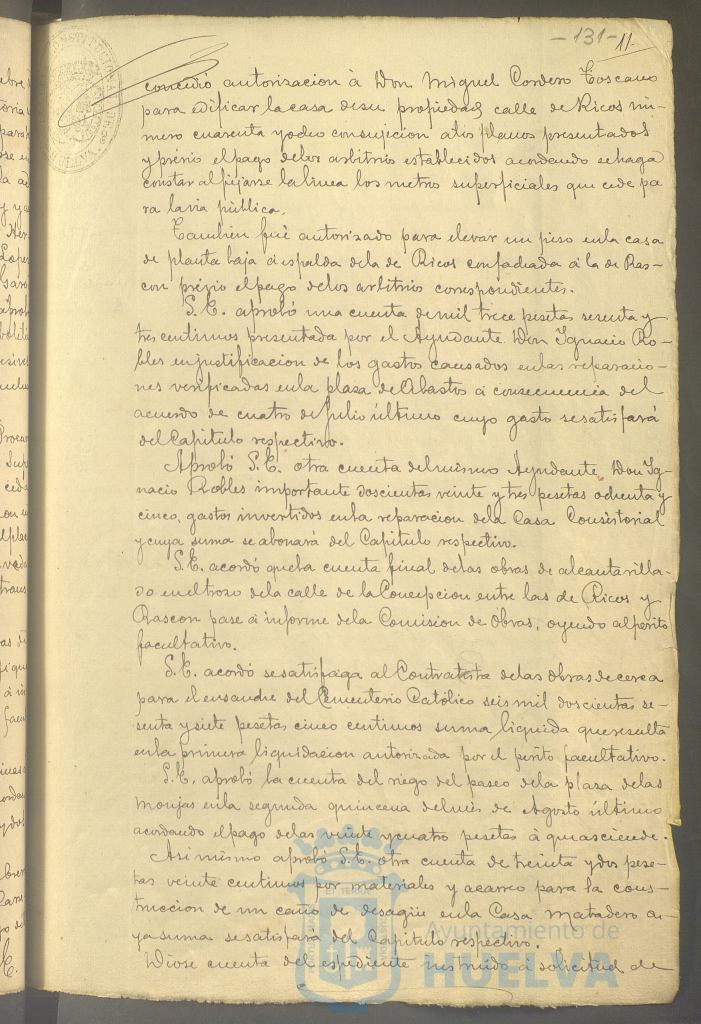 -131- 11
concedió autorizacion à Don Miguel Cordero Toscano
para edificar la casa desu propiedad calle de Ricos nú-
mero cuarenta ydos consujecion alos planos presentados
y prévio elpago delos arbitrios establecidos acordando sehaga
constar alfijarse lalinea los metros superficiales que cede pa
ra lavia pública.
Tambien fué autorizado para elevar un piso enla casa
de planta baja á espalda dela de Ricos confachada á la de Ras-
con prévio elpago delos arbitrios correspondientes.
S.E. aprobó una cuenta demil trece pesetas sesenta y
tres centimos presentada por el Ayudante Don Ygnacio Ro-
bles enjustificacion de los gastos causados enlas reparacio-
nes verificadas enla plaza de Abastos á consecuencia del
acuerdo de cuatro de Julio último cuyo gasto sesatisfará
del Capitulo respectivo.
Aprobó S.E. otra cuenta delmismo Ayudante Don Yg-
nacio Robles importante doscientas veinte y tres pesetas ochenta y
cinco, gastos invertidos enla reparacion dela Casa Consistorial
y cuya suma se abonará del Capitulo respectivo.
S.E. acordó quela cuenta final delas obras de alcantarilla-
do eneltrozo dela calle de la Concepcion entre las de Ricos y
Rascon pase á informe dela Comision de Obras, oyendo alperito
facultativo.
S.E. acordó sesatisfaga al Contratista delas obras decerca
para el ensanche del Cementerio Católico seis mil doscientas se-
senta y siete pesetas cinco centimos suma liquida queresulta
enla primera liquidacion autorizada por el perito facultativo.
S.E. aprobó la cuenta del riego del paseo dela plaza delas
monjas enla segunda quincena delmes de Agosto último
acordando elpago delas veinte ycuatro pesetas à queasciende.
Asimismo aprobó S.E. otra cuenta de treinta ydos pese-
tas veinte centimos por materiales y acarreo para la cons-
truccion de un caño de desagüe enla Casa Matadero cu-
ya suma sesatisfará del Capitulo respectivo.
Diose cuenta del espediente instruido á solicitud de
Ayuntamiento de
HUELVA